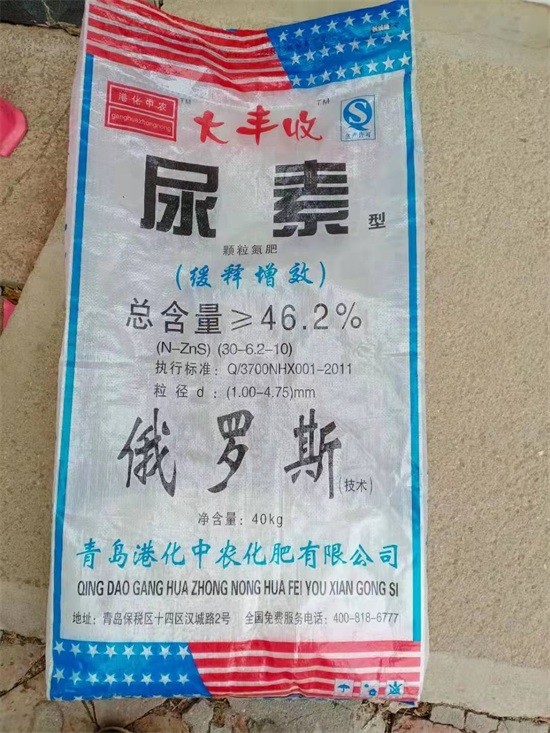 港化中农
ganghuazhongnong
TM
大丰收
TM
QS
生产许可
尿素型
颗粒氮肥
(缓释增效)
总含量≥46.2%
(N-ZnS) (30-6.2-10)
执行标准：Q/3700NHX001-2011
粒径d：(1.00-4.75)mm
俄罗斯(技术)
净含量：40kg
青岛港化中农化肥有限公司
QING DAO GANG HUA ZHONG NONG HUA FEI YOU XIAN GONG SI
地址：青岛保税区十四区汉城路2号 全国免费服务电话：400-818-6777